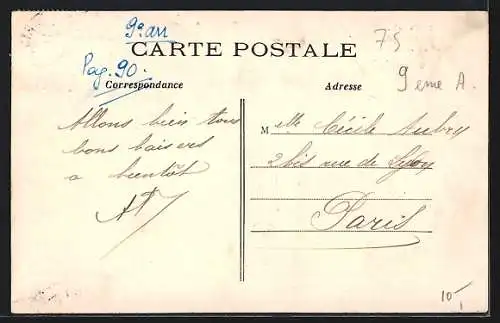 9e arr
CARTE POSTALE
75
Pag. 90.
Correspondance
Adresse
9 eme A.
Allons bien tous
bons baisers
a bientôt
M elle Cécile Aubry
2 bis rue de
Paris
10